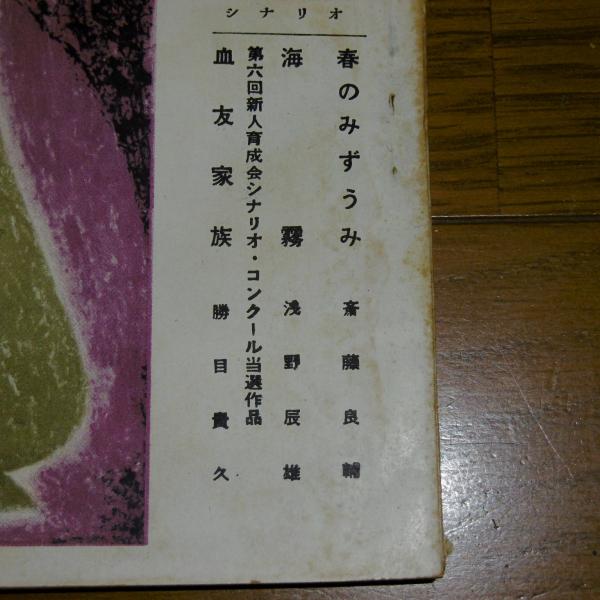 シナリオ
春のみずうみ 斎藤良輔
海霧 浅野辰雄
第六回新人育成会シナリオ・コンクール当選作品
血友家族 勝目貴久